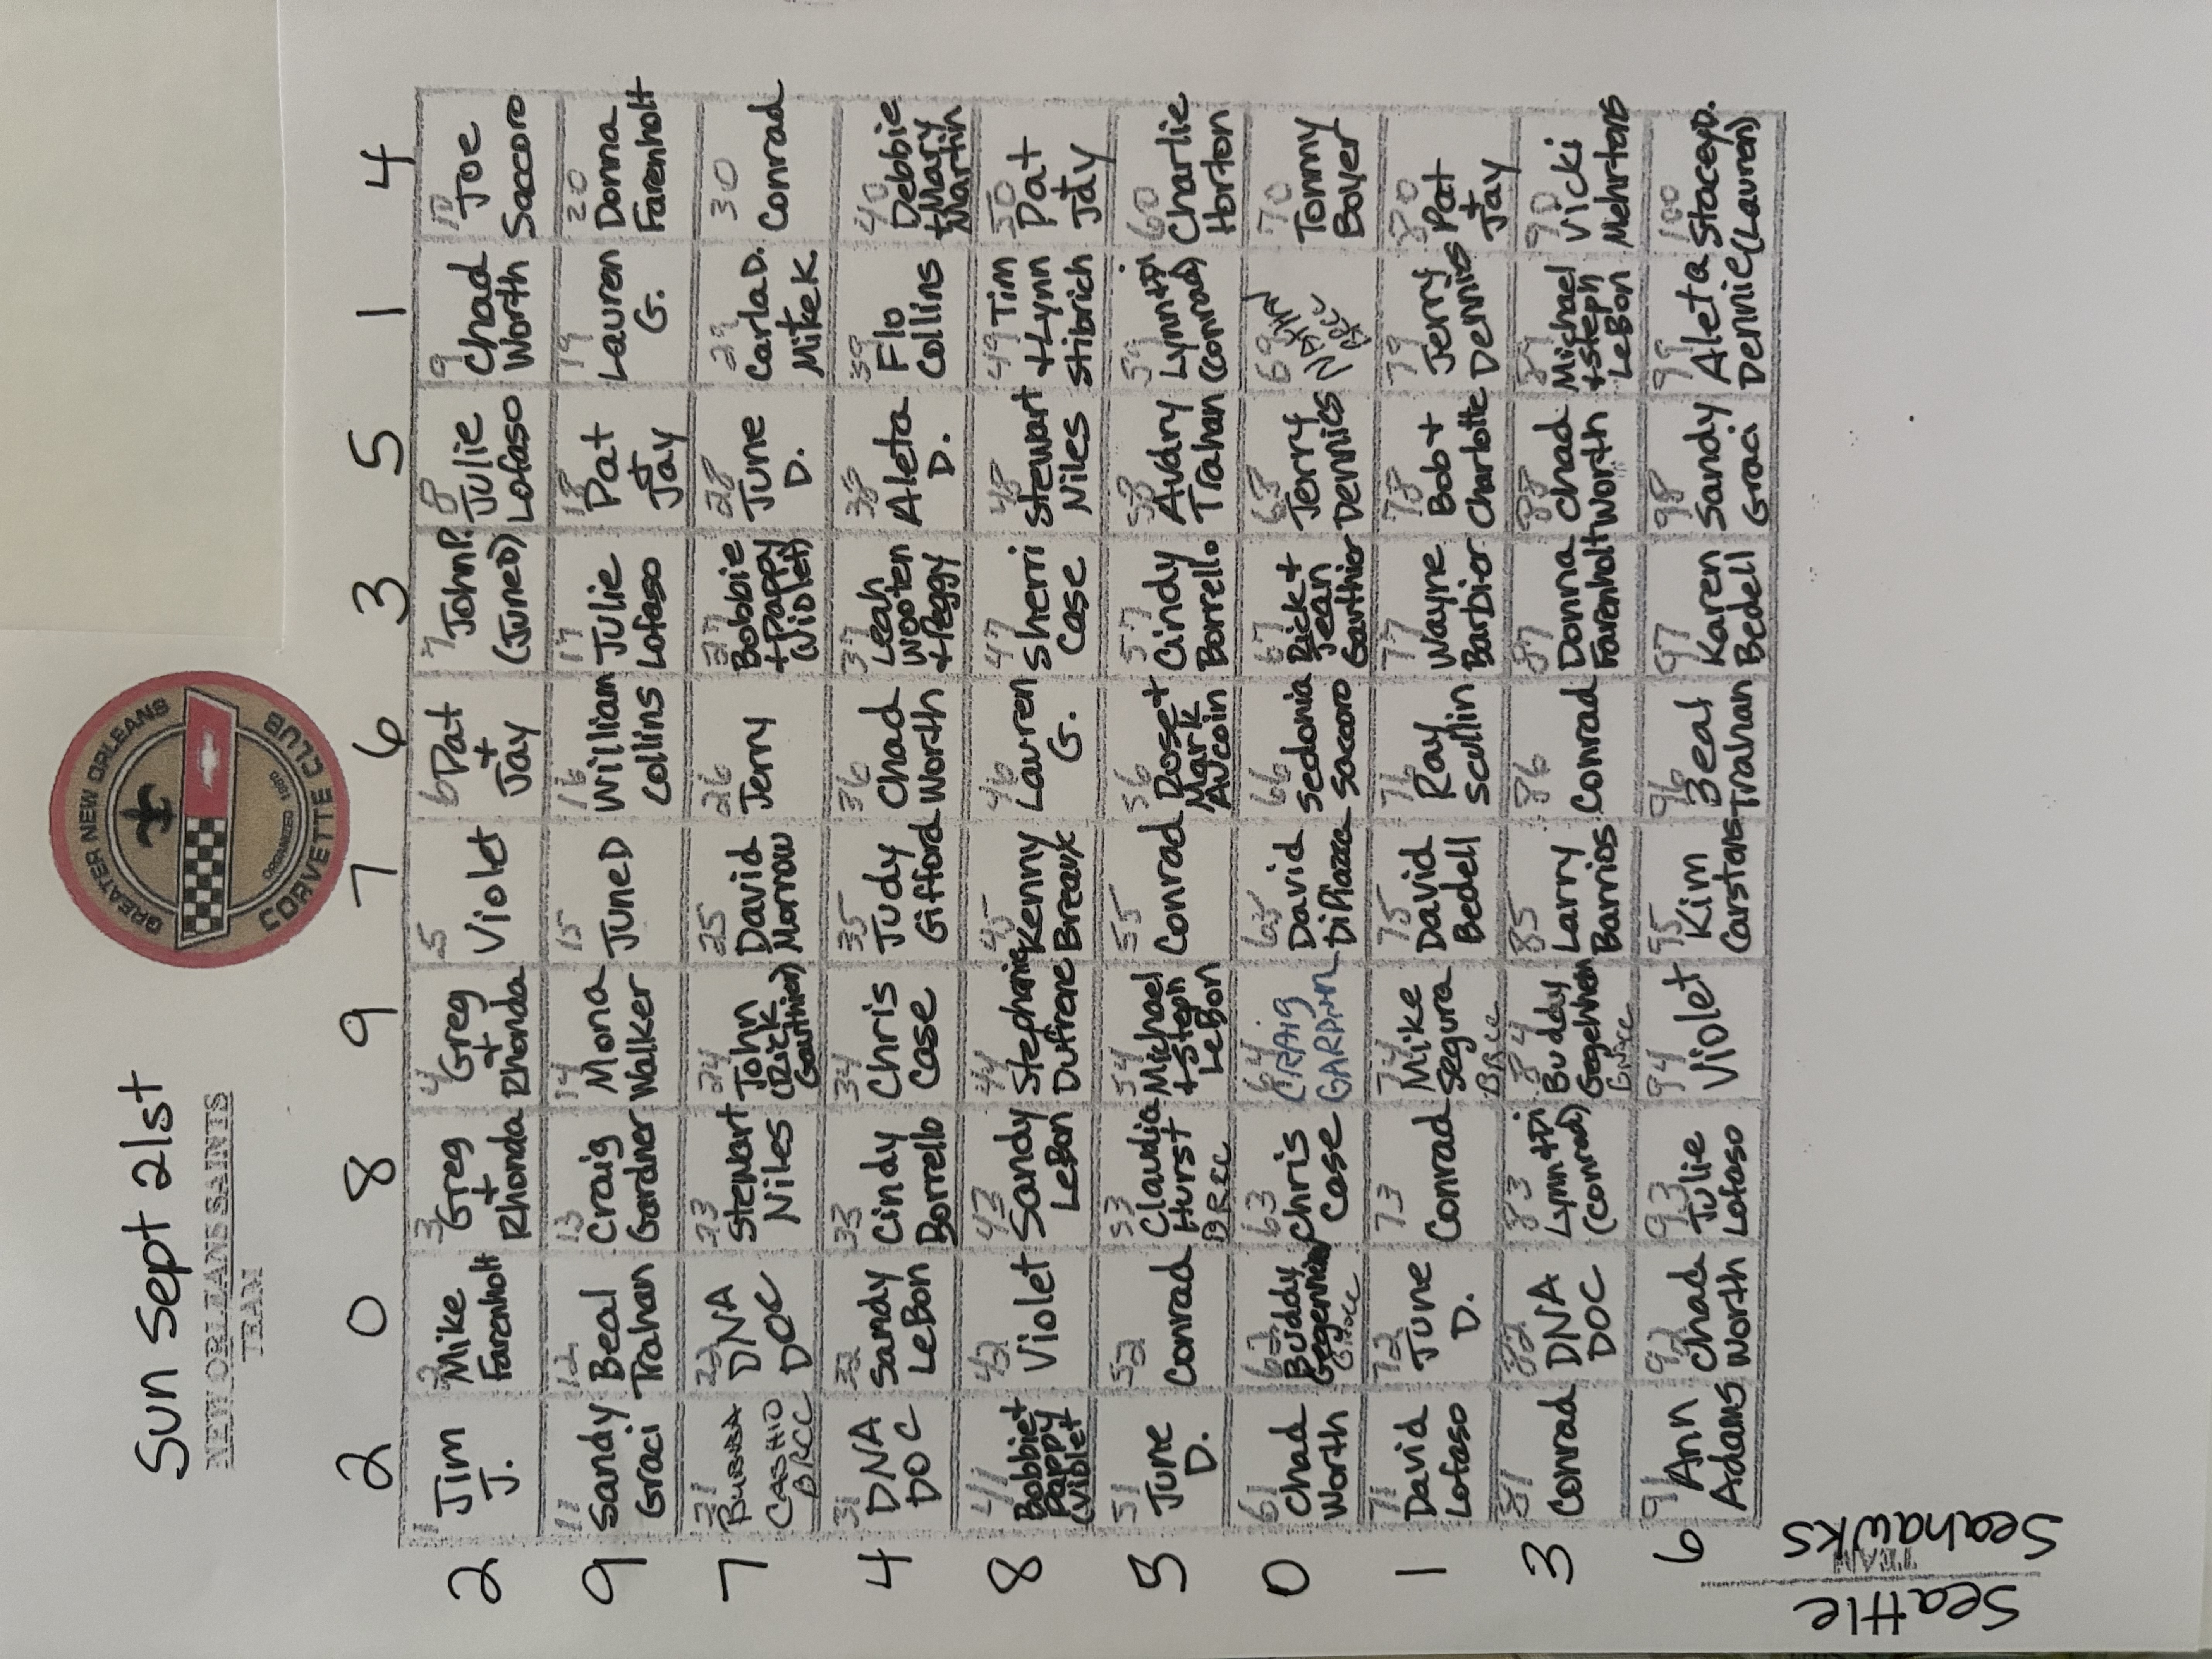 Sun Sept 21st
NEW ORLEANS SAINTS
TEAM
GREATER NEW ORLEANS
ORGANIZED 1980
CORVETTE CLUB
2 0 8 9 7 6 3 5 1 4
2
1 Jim J.
2 Mike Farenholt
3 Greg + Rhonda
4 Greg + Rhonda
5 Violet
6 Pat + Jay
7 John P. (June D)
8 Julie Lofaso
9 Chad Worth
10 Joe Saccoro
9
11 Sandy Graci
12 Beal Trahan
13 Craig Gardner
14 Mona Walker
15 June D
16 William Collins
17 Julie Lofaso
18 Pat + Jay
19 Lauren G.
20 Donna Farenholt
7
21 BUBBA CASHIO BRCC
22 DNA DOC
23 Stewart Niles
24 John (Rick Gauthier)
25 David Morrow
26 Jerry
27 Bobbie + Pappy (Violet)
28 June D.
29 Carla D. Mike K.
30 Conrad
4
31 DNA DOC
32 Sandy LeBon
33 Cindy Borrello
34 Chris Case
35 Judy Gifford
36 Chad Worth
37 Leah Wooten + Peggy
38 Aleta D.
39 Flo Collins
40 Debbie + Mary Martin
8
41 Bobbie + Pappy (Violet
42 Violet
43 Sandy LeBon
44 Stephanie Dufrene
45 Kenny Breaux
46 Lauren G.
47 Sherri Case
48 Stewart Niles
49 Tim + Lynn Stibrich
50 Pat + Jay
5
51 June D.
52 Conrad
53 Claudia Hurst BRCC
54 Michael + Steph LeBon
55 Conrad
56 Dose + Mark Aucoin
57 Cindy Borrello
58 Audry Trahan
59 Lynn + Di (Conrad)
60 Charlie Horton
0
61 Chad Worth
62 Buddy Gegenheimer
63 Chris Case
64 CRAIG
65 David DiPiazza
66 Sedonia Saccoro
67 Rick + Jean Gauthier
68 Jerry Dennies
69
70 Tommy Boyer
1
71 David Lofaso
72 June D.
73 Conrad
74 Mike Segura BRCC
75 David Bedell
76 Ray Scullin
77 Wayne Barbior
78 Bob + Charlotte
79 Jerry Dennis
80 Pat + Jay
3
81 Conrad
82 DNA DOC
83 Lynn + Di (Conrad)
84 Buddy
85 Larry Barrios
86 Conrad
87 Donna Farenholt
88 Chad Worth
89 Michael + Steph LeBon
90 Vicki Mehrtens
6
91 Ann Adams
92 Chad Worth
93 Julie Lofaso
94 Violet
95 Kim Carstans
96 Beal Trahan
97 Karen Bedell
98 Sandy Graci
99 Aleta Dennie
100 Stacey D. (Lauren)
TEAM
Seattle Seahawks